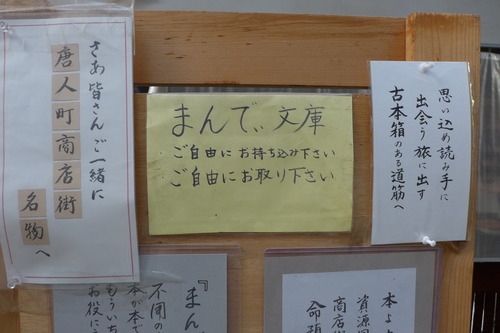 さあ皆さんご一緒に
唐人町商店街
名物へ
まんでぃ文庫
ご自由にお持ち込み下さい
ご自由にお取り下さい
思い込め読み手に
出会う旅に出す
古本箱のある道筋へ
『まん
本が本で
もういち
お役に
本よ
資源
商店
命